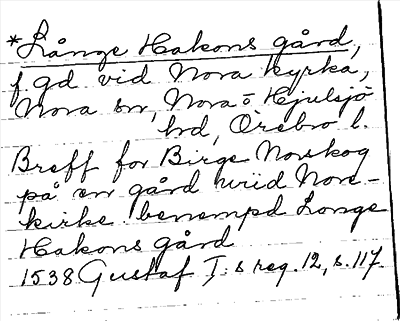 *Långe Hakons gård,
f gd vid Nora kyrka,
Nora sn, Nora o Hjulsjö
hd, Örebro l.
Breff for Birge Norskog
på en gård wiid Nore-
kirke benempd Longe
Hakons gård
1538 Gustaf I:s reg. 12, s. 117.